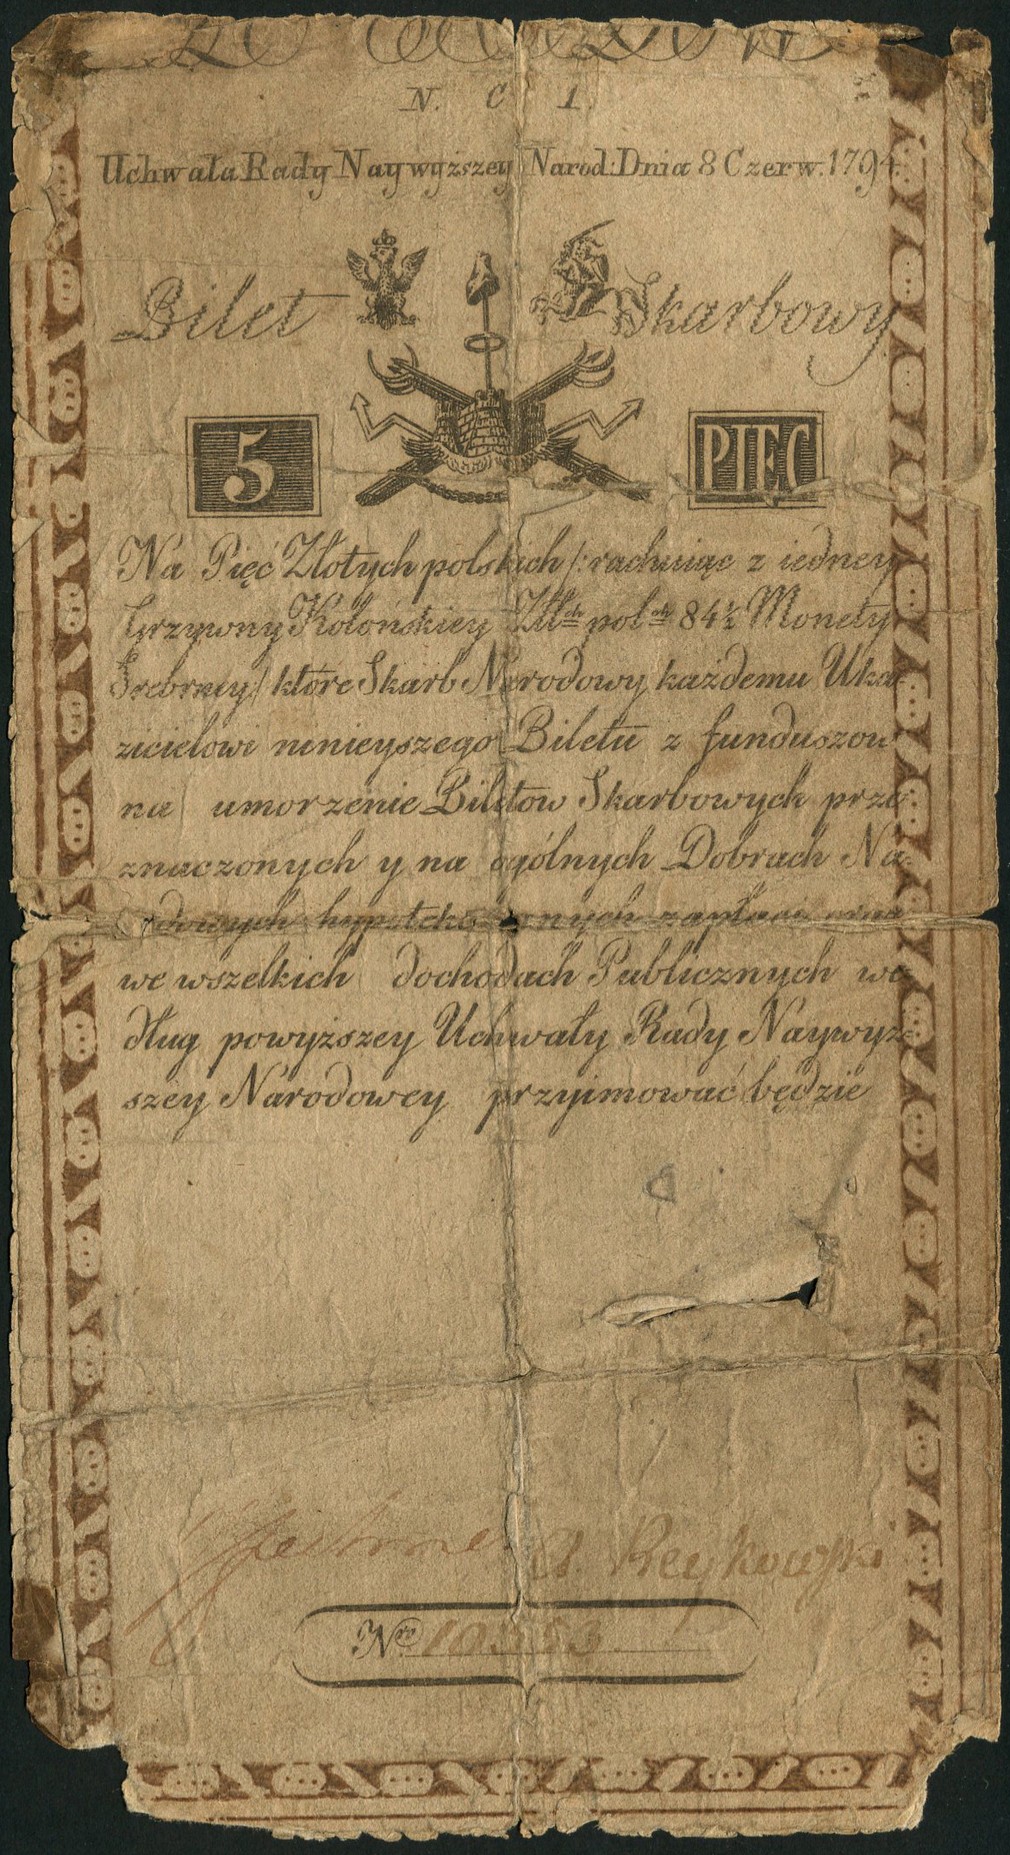 N. C 1.
Uchwała Rady Naywyższey Narod: Dnia 8 Czerw. 1794.
Bilet Skarbowy
5 PIĘC
Na Pięć Złotych polskich /: rachuiąc z iedney
Grzywny Kolońskiey Zł.ch pol.ch 84½ Monety
Srebrney/ ktore Skarb Narodowy każdemu Uka
zicielowi ninieyszego Biletu z funduszow
na umorzenie Biletow Skarbowych prze
znaczonych y na ogólnych Dobrach Na
rodowych hypotekowanych zapłaci oraz
we wszelkich dochodach Publicznych we
dług powyższey Uchwały Rady Naywyż
szey Narodowey przyimować będzie
A. Reykowski
Nro